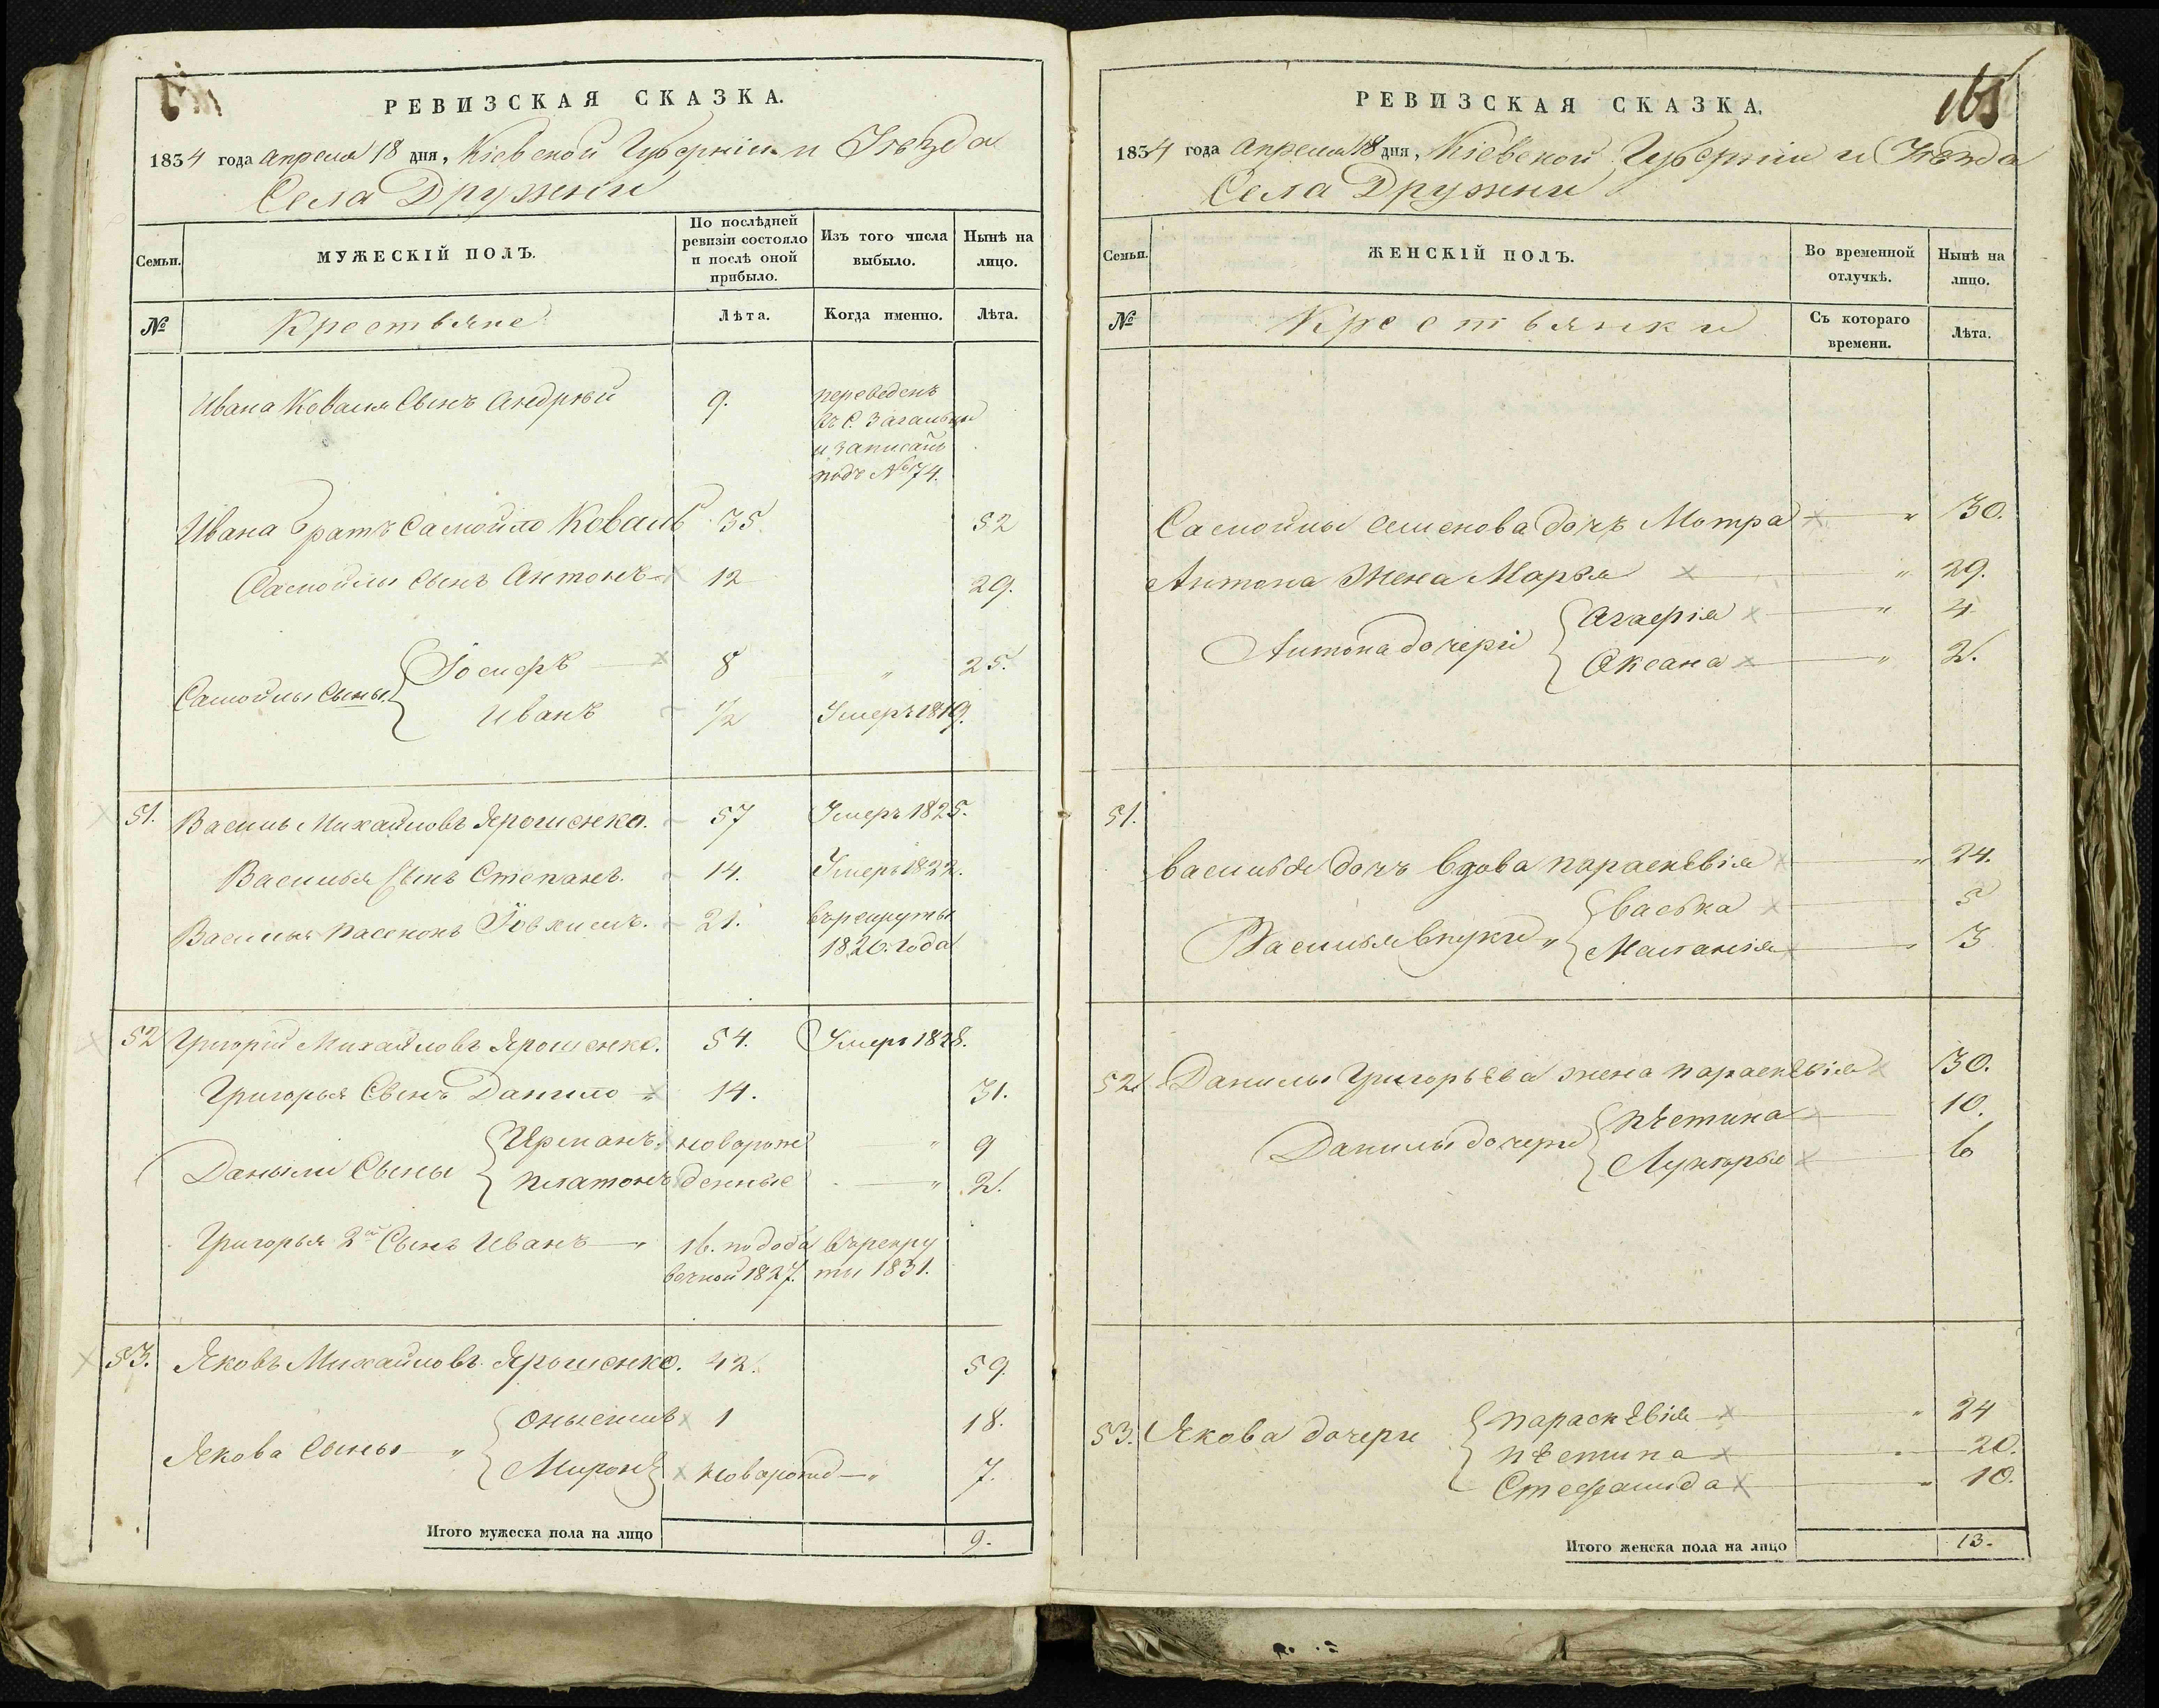 РЕВИЗСКАЯ СКАЗКА.
1834 года апреля 18 дня, Кіевской Губерніи и Уѣзда
Села Дружни
Семьи.
МУЖЕСКІЙ ПОЛЪ.
По послѣдней ревизіи состояло и послѣ оной прибыло.
Изъ того числа выбыло.
Нынѣ на лицо.
№
Крестьяне
Лѣта.
Когда именно.
Лѣта.
Ивана Коваля Сынъ Андрѣй 9. переведенъ
въ С. Загальцы
и записанъ
подъ № 74.
Ивана Братъ Самойло Коваль 35 52
Самойлы Сынъ Антонъ 12 29.
Самойлы Сыны
Іосифъ 8 „ 25.
Иванъ 1/2 Умеръ 1819.
51. Василь Михайловъ Ярошенко. 57 Умеръ 1825.
Василья Сынъ Степанъ. 14. Умеръ 1822.
Василья пасенокъ 21. въ рекруты
1820. года
52 Григорій Михайловъ Ярошенко. 54. Умеръ 1828.
Григорья Сынъ Данило „ 14. 31.
Данылы Сыны
Ирманъ новорож „ 9
Платонъ денные „ 2.
Григорья 2й Сынъ Иванъ „ 16. по доба въ рекру
вочной 1827. ты 1831.
53. Яковъ Михайловъ Ярошенко. 42. 59.
Якова Сыны „
Онысимъ 1 18.
Миронъ новорожд „ 7.
Итого мужеска пола на лицо 9.
165
РЕВИЗСКАЯ СКАЗКА.
1834 года апреля 18 дня, Кіевской Губерніи и Уѣзда
Села Дружни
Семьи.
ЖЕНСКІЙ ПОЛЪ.
Во временной отлучкѣ.
Нынѣ на лицо.
№
Крестьянки
Съ котораго времени.
Лѣта.
Самойлы Семенова дочъ Мотра „ 30.
Антона Жена Марья „ 29.
Антона дочери
Агафія „ 4
Оксана „ 2.
51.
Василья дочъ вдова Параскѣвія „ 24.
Василья внуки „
Васька 5
Маланія 3
52. Данилы Григорьѣва жена Параскѣвія 30.
Данилы дочери
Пѣстина 10.
Лукѣрья 6
53. Якова дочери
Параскѣвія „ 24
Пѣстина 20.
Стефанида 10.
Итого женска пола на лицо 13.